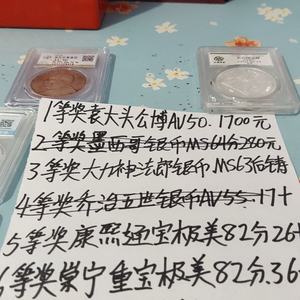 1等奖袁大头公博AV50.1700元
2等奖墨西哥银币MS64分280元
3等奖大力神法郎银币MS63后铸
4等奖乔治五世银币AV55.17十
5等奖康熙通宝极美82分26
6等奖崇宁重宝极美82分.36